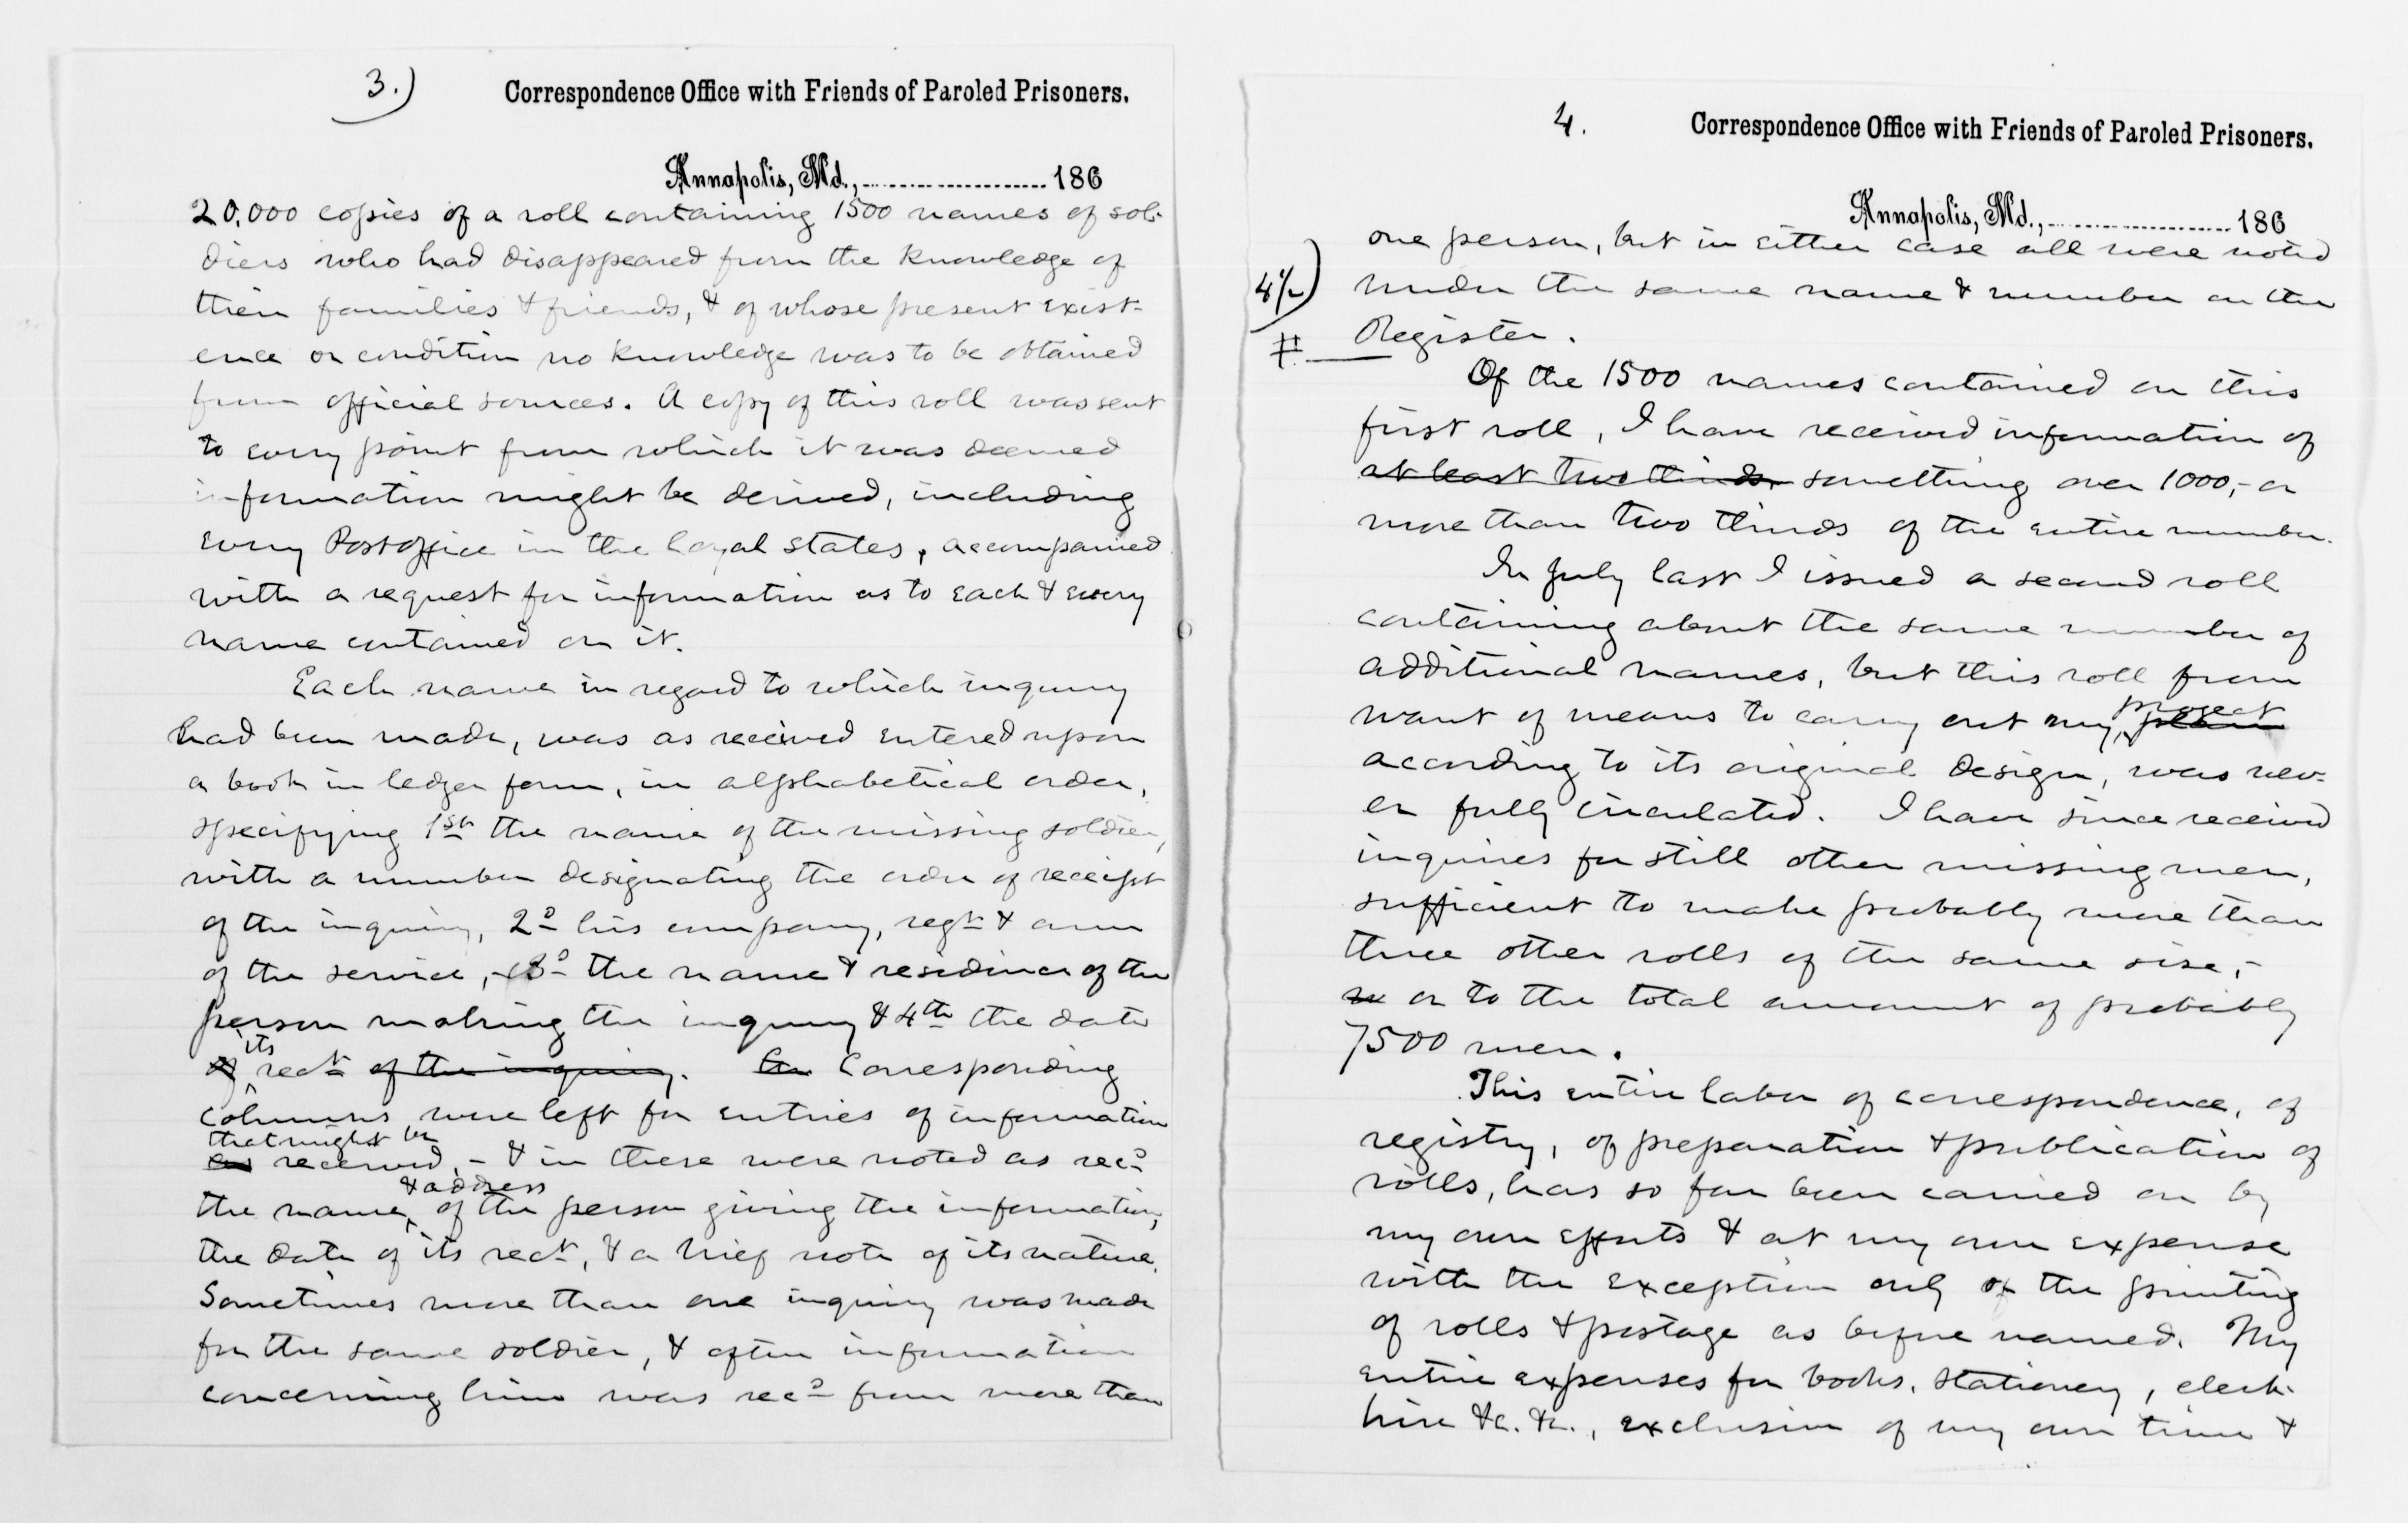 3.)
Correspondence Office with Friends of Paroled Prisoners.
Annapolis, Md., 186
20,000 copies of a roll containing 1500 names of sol-
diers who had disappeared from the knowledge of
their families & friends, & of whose present exist-
ence or condition no knowledge was to be obtained
from official sources. A copy of this roll was sent
to every point from which it was deemed
information might be derived, including
every Postoffice in the loyal states, accompanied
with a request for information as to each & every
name contained on it.
Each name in regard to which inquiry
had been made, was as received entered upon
a book in ledger form, in alphabetical order,
specifying 1st the name of the missing soldier,
with a number designating the order of receipt
of the inquiry, 2d his company, regt & arm
of the service, - 3d the name & residence of the
person making the inquiry & 4th the date
its
of rect of the inquiry. Corresponding
columns were left for entries of information
that might be
as received, - & in these were noted as recd
& address
the name, of the person giving the information,
the date of its rect, & a brief note of its nature.
Sometimes more than one inquiry was made
for the same soldier, & often information
concerning him was recd from more than
4.
Correspondence Office with Friends of Paroled Prisoners.
Annapolis, Md., 186
one person, but in either case all were noted
4½)
under the same name & number on the
# Register.
Of the 1500 names contained on this
first roll, I have received information of
at least two thirds, something over 1000,- or
more than two thirds of the entire number.
In July last I issued a second roll
containing about the same number of
additional names, but this roll from
project
want of means to carry out my plan
according to its original design, was nev-
er fully circulated. I have since received
inquiries for still other missing men,
sufficient to make probably more than
three other rolls of the same size,-
or to the total amount of probably
7500 men.
This entire labor of correspondence, of
registry, of preparation & publication of
rolls, has so far been carried on by
my own efforts & at my own expense
with the exception only of the printing
of rolls & postage as before named. My
entire expenses for books, stationery, clerk-
hire &c. &c., exclusive of my own time &